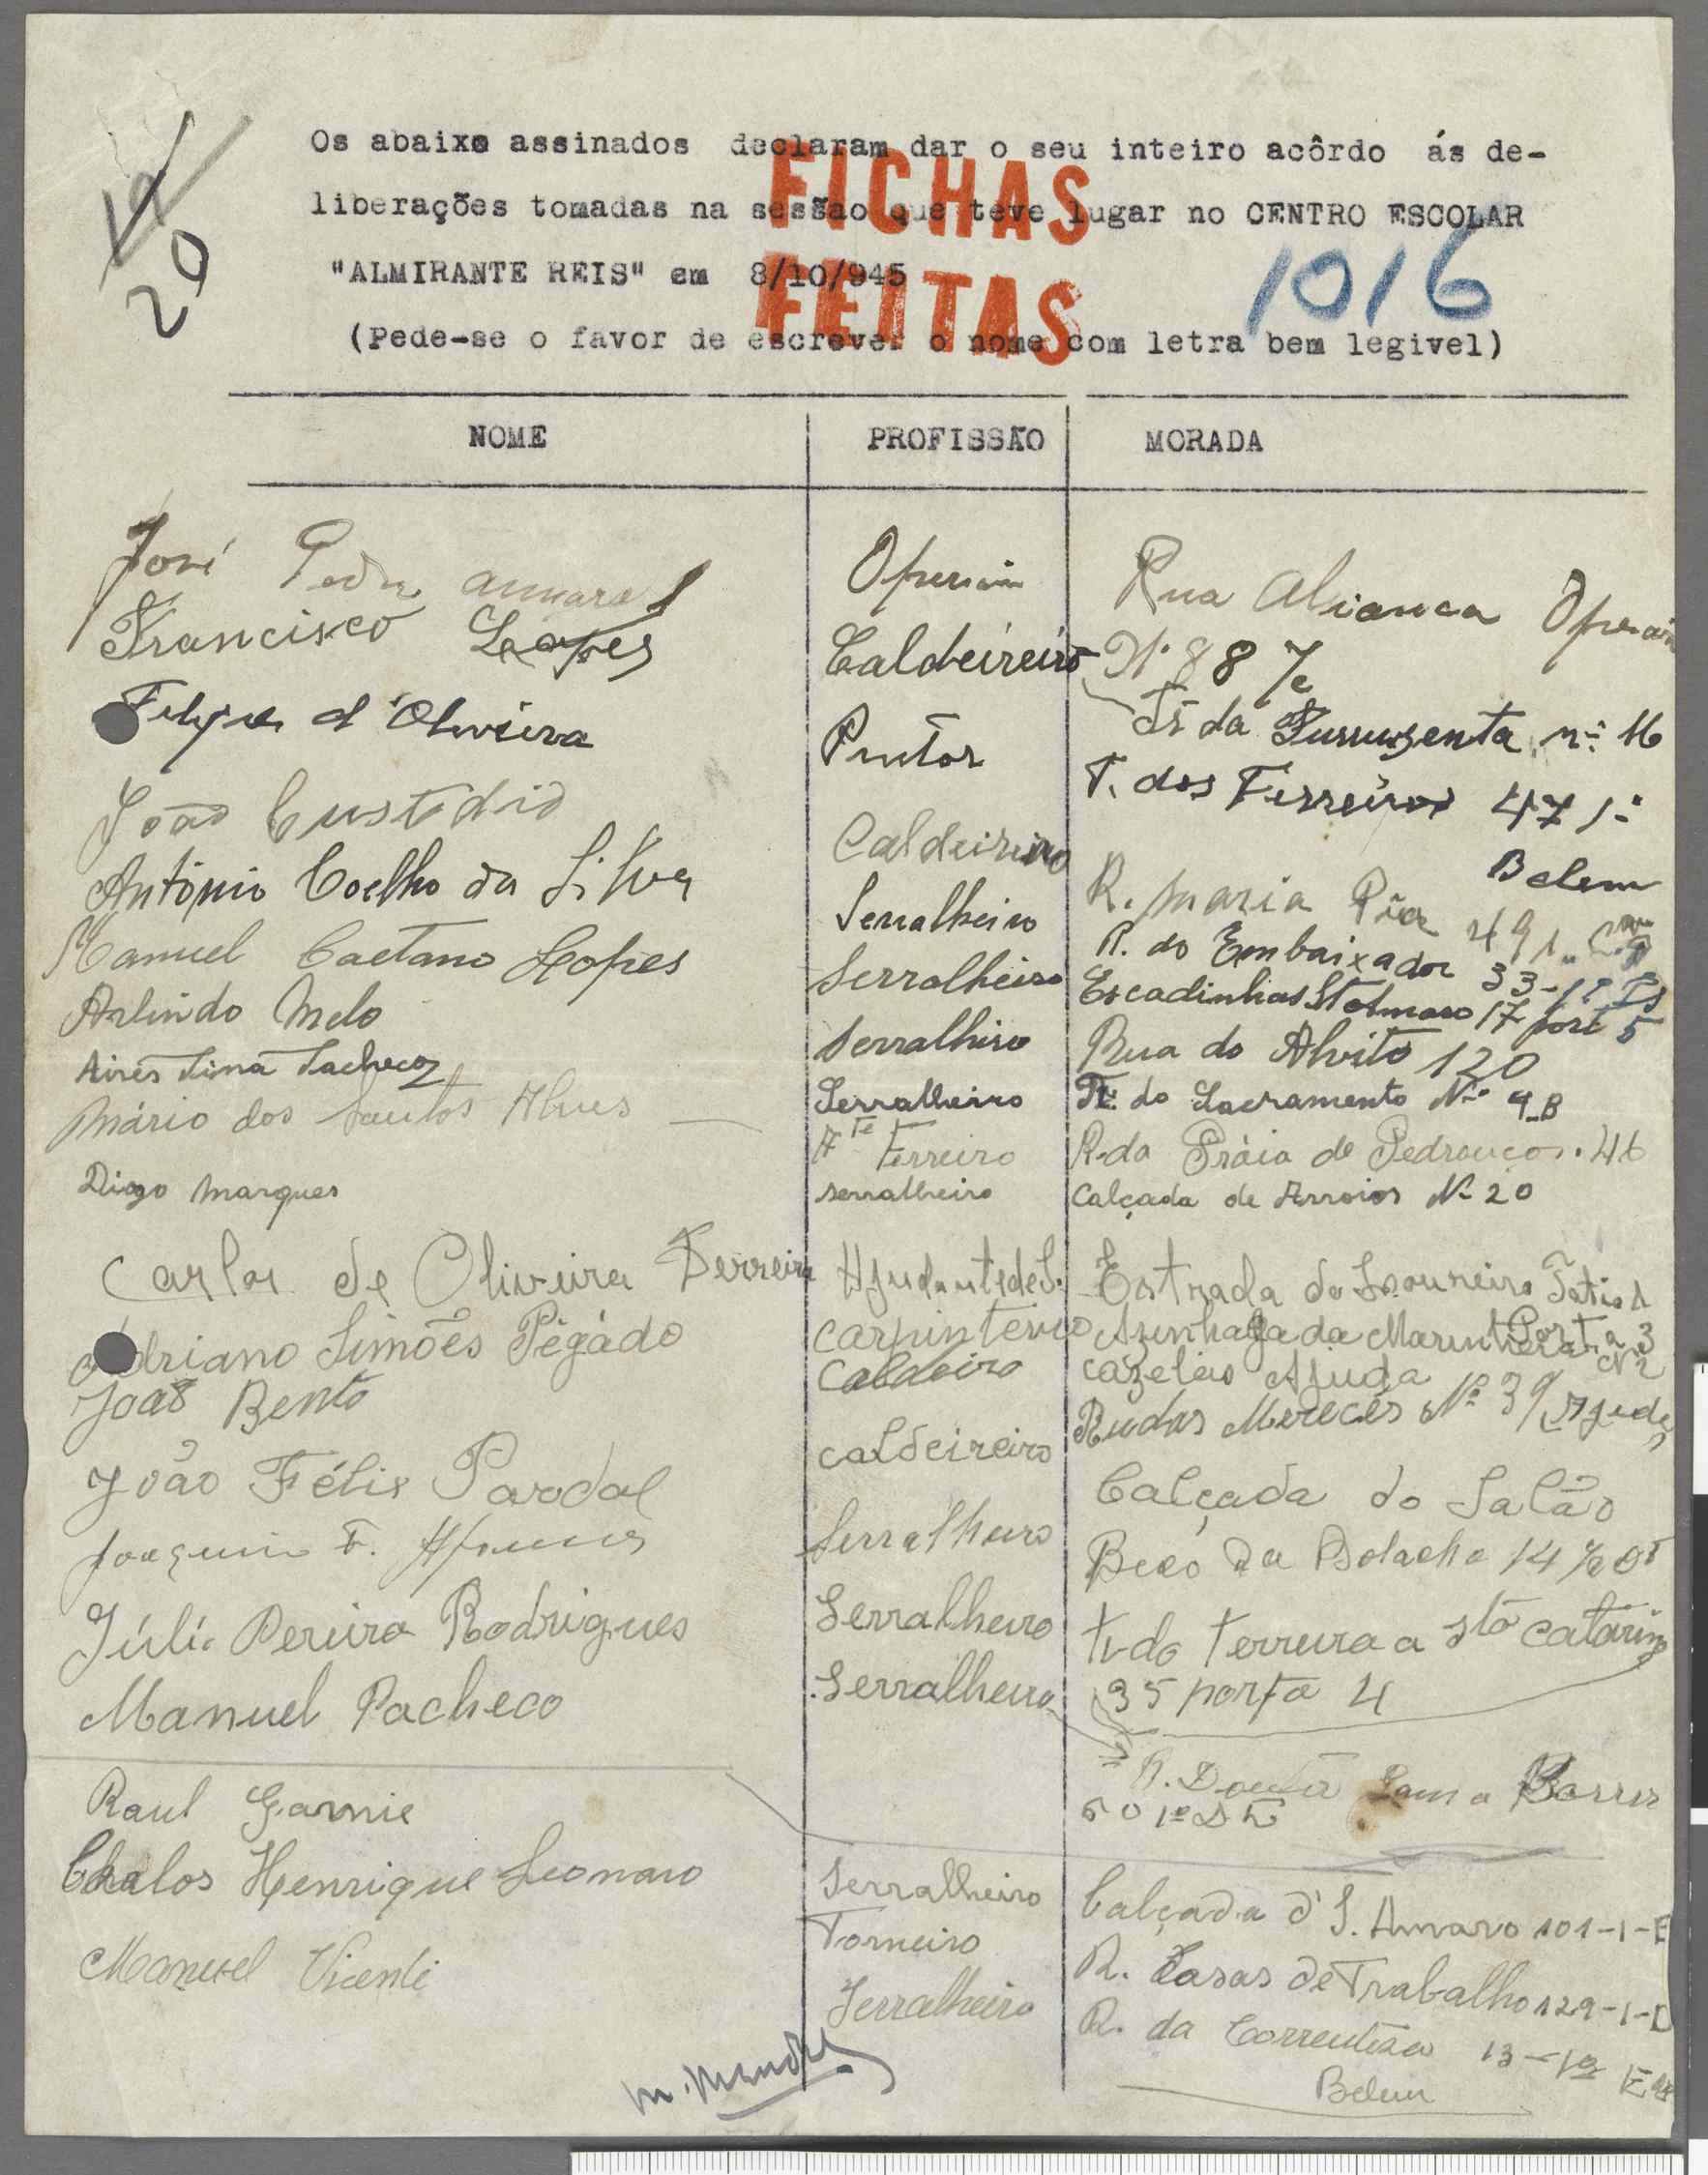 19
20
Os abaixo assinados declaram dar o seu inteiro acôrdo ás de-
liberações tomadas na sessão que teve lugar no CENTRO ESCOLAR
"ALMIRANTE REIS" em 8/10/945
(Pede-se o favor de escrever o nome com letra bem legivel)
FICHAS
FEITAS
1016
NOME PROFISSÃO MORADA
José Pedro Amaral Operario Rua Aliança Operaria
Nº 88 7c
Francisco Lopes Caldeireiro Tr da nº 16
Felipe d'Oliveira Pintor T. dos Ferreiros 47 1º
Belem
João Custódio Caldeireiro R. Maria Pia 491
António Coelho da Silva Serralheiro R. do Embaixador 33-1º
Manuel Caetano Lopes Serralheiro Escadinhas Stº Amaro 17 port 5
Arlindo Melo Serralhiro Rua do Alvito 120
Aires Lima Pacheco Serralheiro Tr. do Sacramento Nº 9-B
Mário dos Santos Alves Ate Ferreiro R. da Práia de Pedrouços. 46
Diogo Marques serralheiro Calçada de Arroios Nº 20
Carlos de Oliveira Ferreira Ajudante de S. Estrada do Loureiro Patio 1
Porta 3
Adriano Simões Pégádo carpinteiro Azinhaga da Marinheira Nº 2
João Bento Caldeiro cazelas Ajuda
Rudas Merecês Nº 39 Ajuda
João Félix Pardal caldeireiro Calçada do Galvão
Joaquim F. Serralheiro Beco da Bolacha 14
Júlio Pereira Rodrigues Serralheiro tv do terreiro a Stª Catarina
35 porta 4
Manuel Pacheco Serralheiro R. Barros
60 1º Dt
Raul Garnie Serralheiro Calçada d'S. Amaro 101-1-E
Carlos Henrique Leonaro Torneiro R. Casas de Trabalho 129-1-D
Manuel Vicente Serralheiro R. da Correnteza 13-1º
Belem
M. Mendes